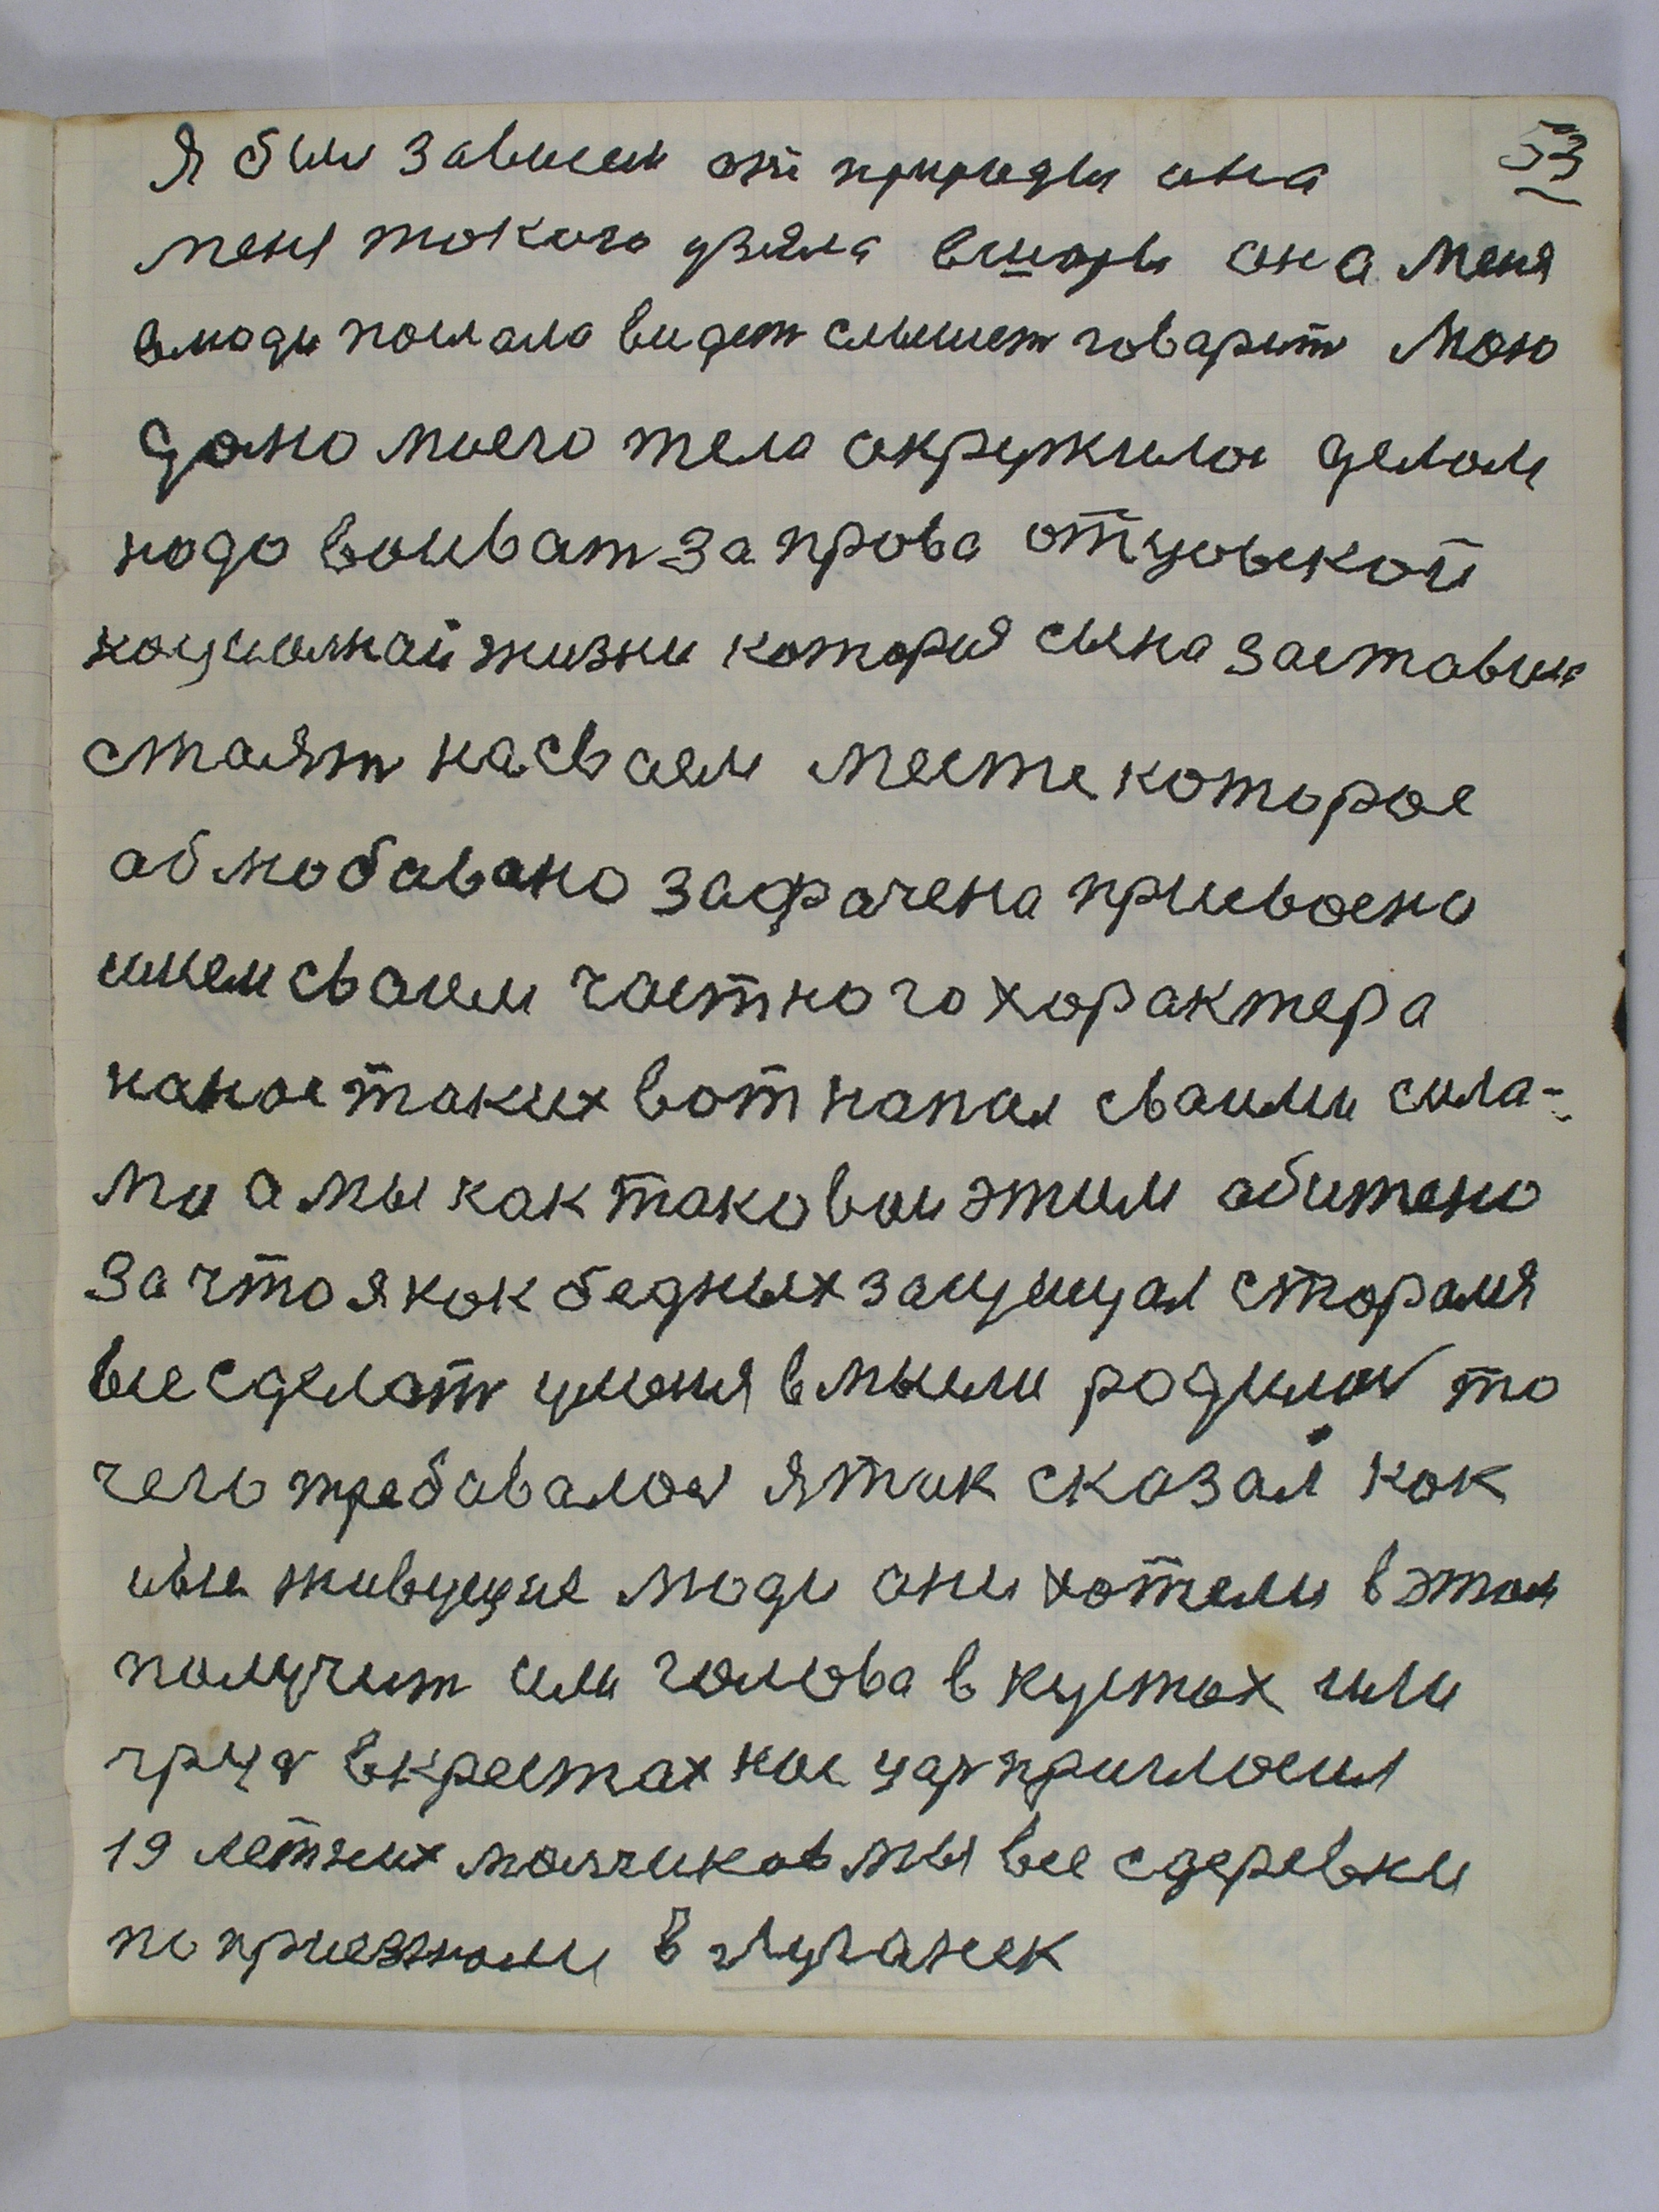 53
Я был зависим от природы она
меня токого узяла вшоры она меня
влюди послала видет слышет говарит мою
дано моего тела окружила делом
нодо воиват за прова отцовской
нацыоалнай жизни которыя сына заставила
стаять насваем месте которое
облюбавано захвачена присвоено
имем сваим частного характера
нанас таких вот напал сваими сила-
ми а мы как таковыи этим абитено
За что я как бедных защищал сторался
все сделат уменя вмысли родилос то
чего требавалос я так сказал как
ивы живущие люди они хотели вэтом
получит или голова в кустах или
груд вкрестах нас цар пригласил
19 летних малчиков мы все сдеревни
по приезнами в Луганск